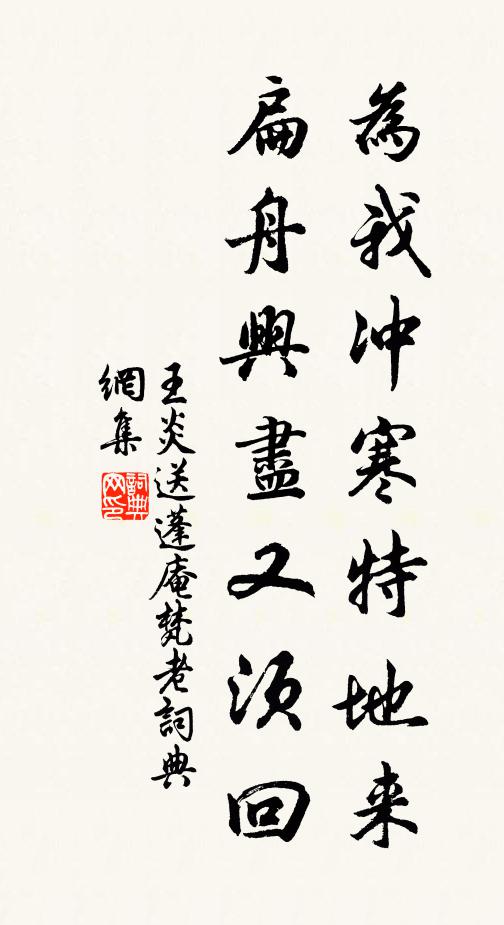 為我冲寒特地来
扁舟興盡又須回
王炎送蓬庵梵老詞典
網集
詞典網印